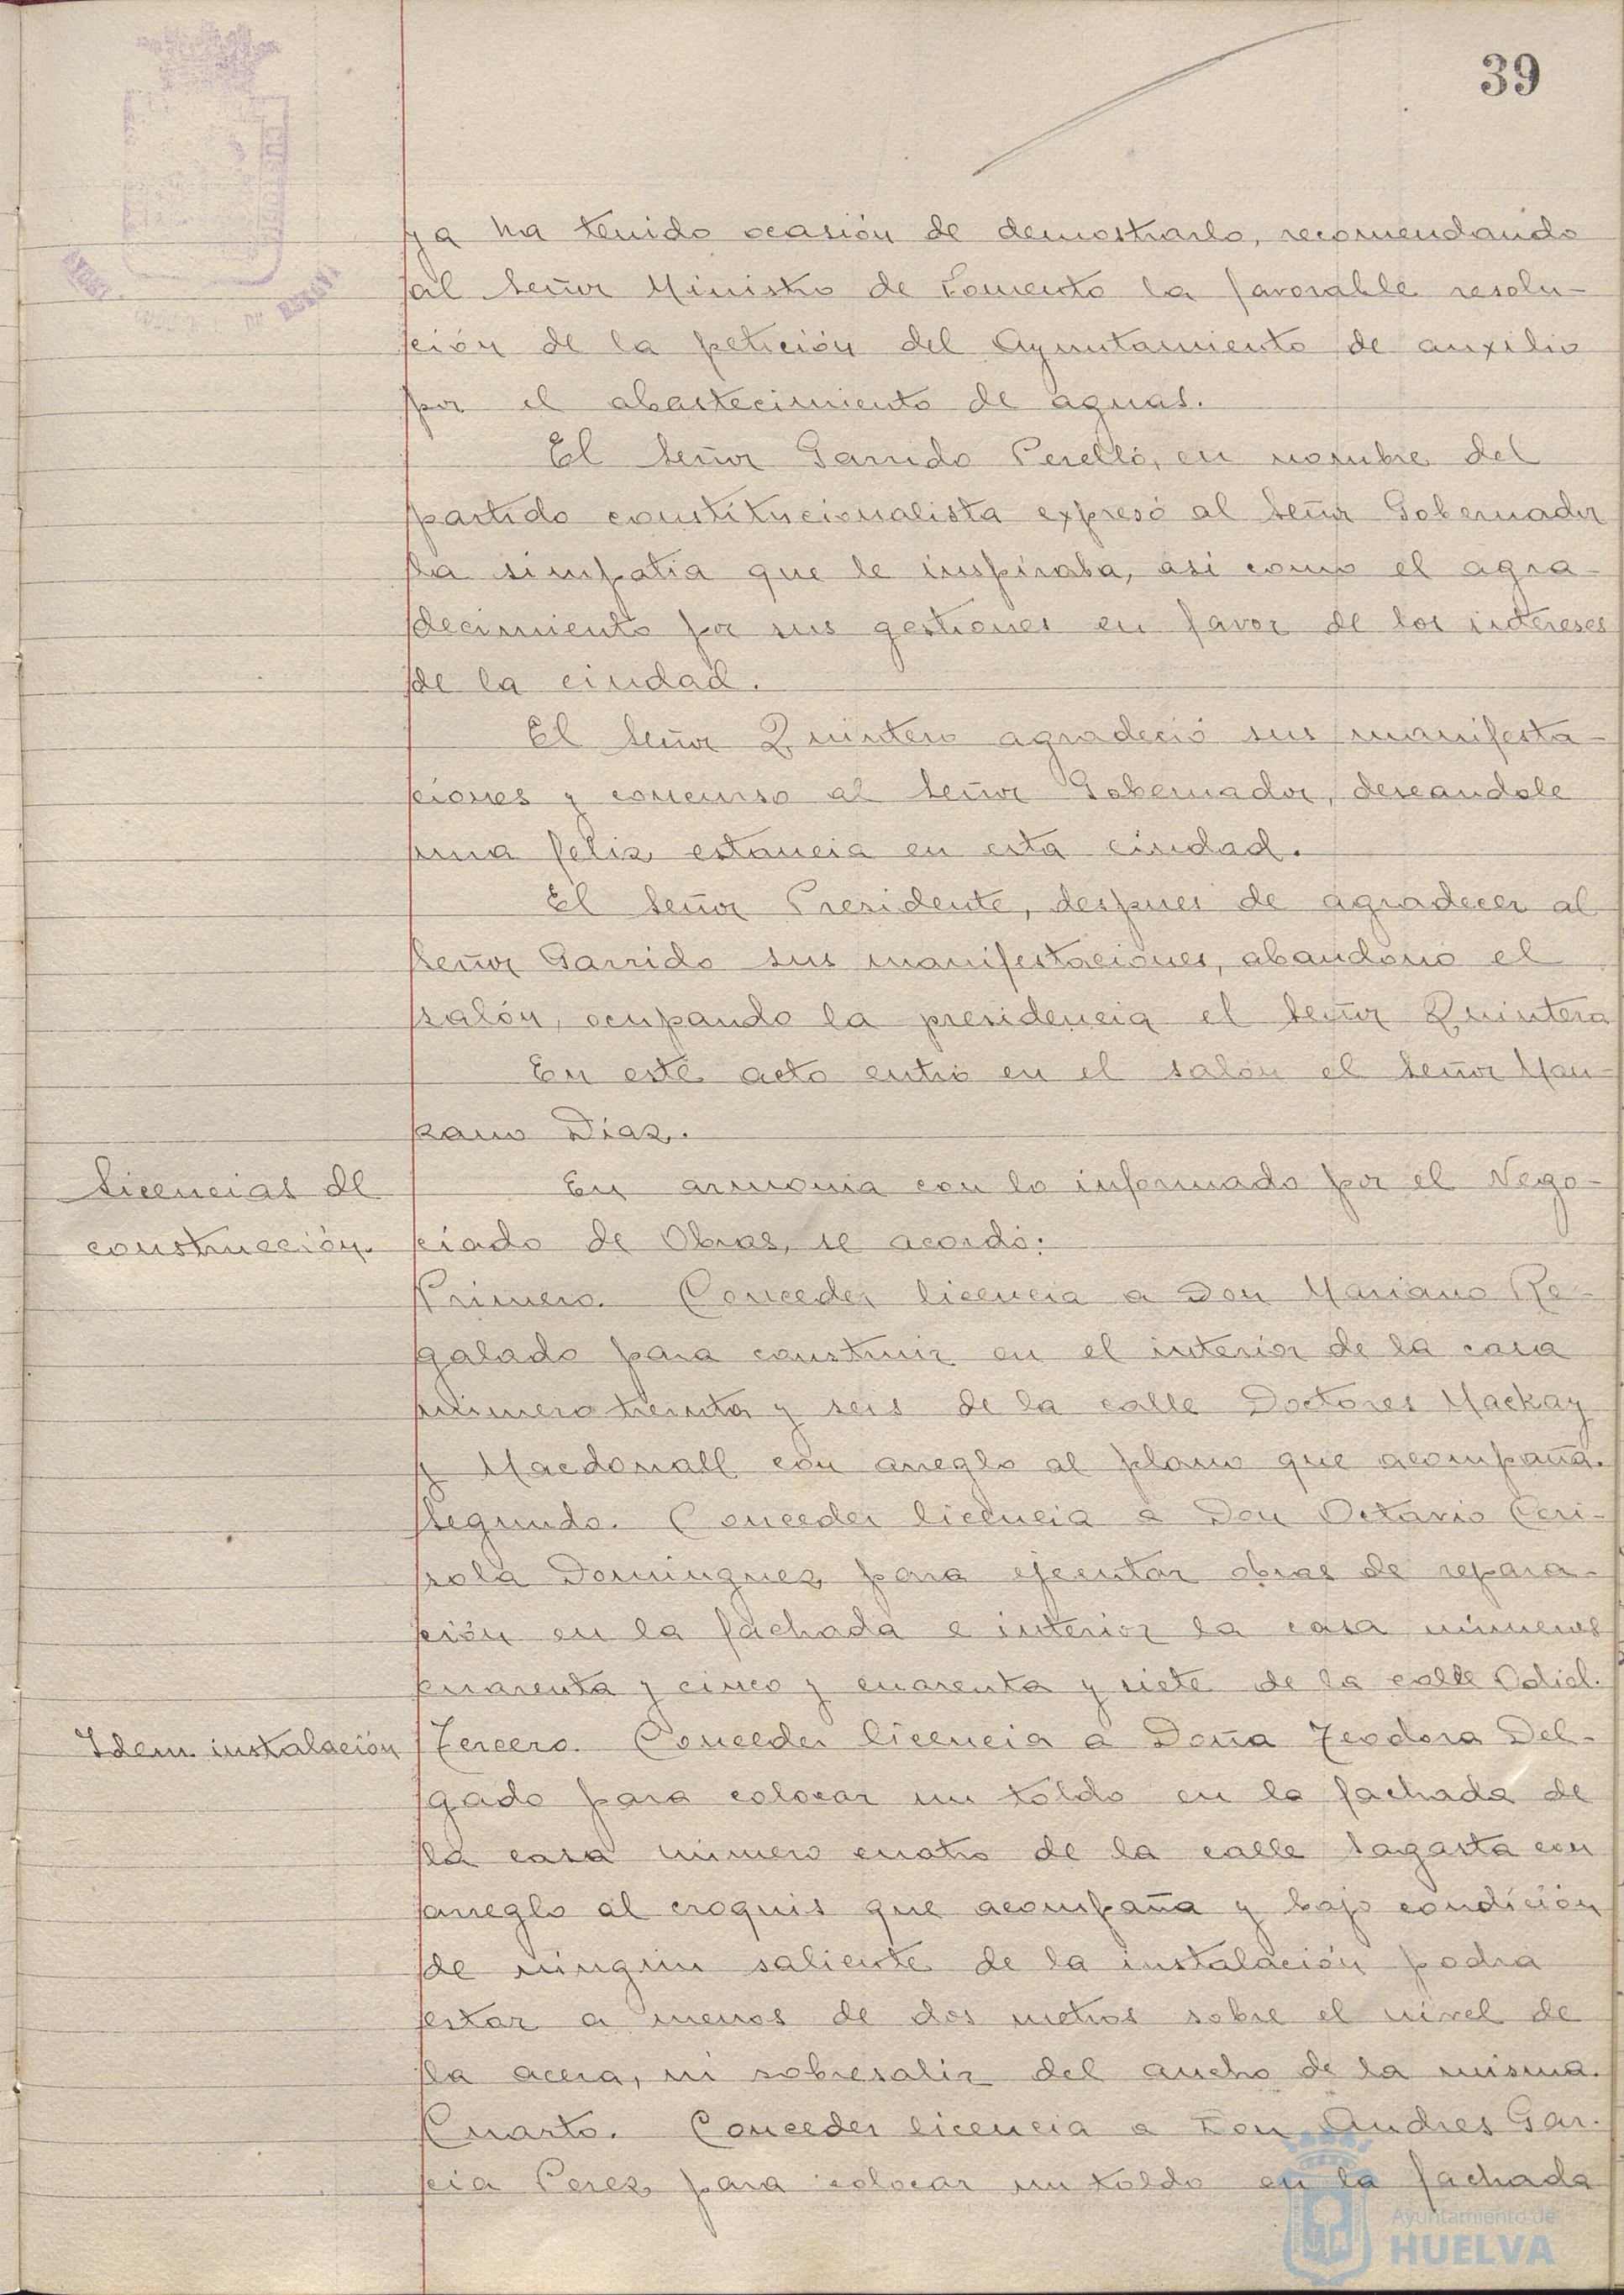 39
ya ha tenido ocasión de demostrarlo, recomendando
al Señor Ministro de Fomento la favorable resolu-
ción de la petición del Ayuntamiento de auxilio
por el abastecimiento de aguas.
El Señor Garrido Perelló, en nombre del
partido constitucionalista expresó al Señor Gobernador
la simpatia que le inspiraba, asi como el agra-
decimiento por sus gestiones en favor de los intereses
de la ciudad.
El Señor Quintero agradeció sus manifesta-
ciones y concurso al Señor Gobernador, deseandole
una feliz estancia en esta ciudad.
El Señor Presidente, despues de agradecer al
Señor Garrido sus manifestaciones, abandono el
salón, ocupando la presidencia el Señor Quintero
En este acto entró en el salón el Señor Man-
zano Díaz.
Licencias de
construcción.
En armonia con lo informado por el Nego-
ciado de Obras, se acordó:
Primero. Conceder licencia a Don Mariano Re-
galado para construir en el interior de la casa
número treinta y seis de la calle Doctores Mackay
y Macdonall con arreglo al plano que acompaña.
Segundo. Conceder licencia a Don Octavio Ceri-
sola Dominguez para ejecutar obras de repara-
ción en la fachada e interior la casa números
cuarenta y cinco y cuarenta y siete de la calle Odiel.
Idem instalación
Tercero. Conceder licencia a Doña Teodora Del-
gado para colocar un toldo en la fachada de
la casa número cuatro de la calle Sagasta con
arreglo al croquis que acompaña y bajo condición
de ningun saliente de la instalación podra
estar a menos de dos metros sobre el nivel de
la acera, ni sobresalir del ancho de la misma.
Cuarto. Conceder licencia a Don Andres Gar-
cia Perez para colocar un toldo en la fachada
Ayuntamiento de
HUELVA